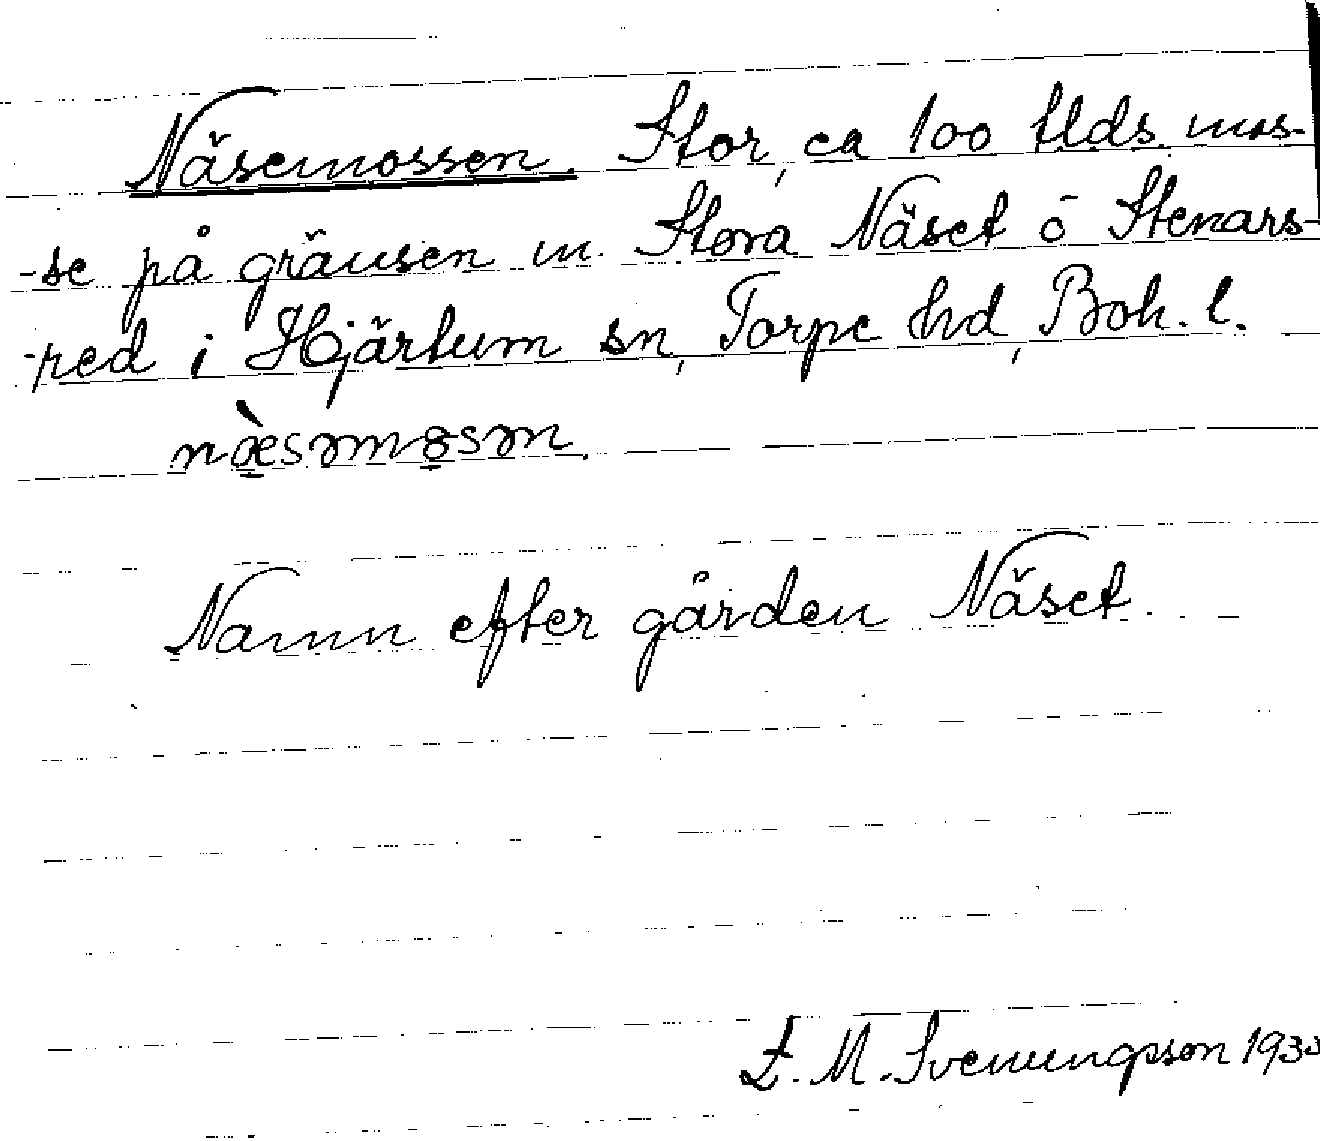 Näsemossen. Stor, ca 100 tlds. mos-
-se på gränsen m. Stora Näset o Stenars-
-red i Hjärtum sn, Torpe hd, Boh. l.
Namn efter gården Näset.
M. Svenungsson